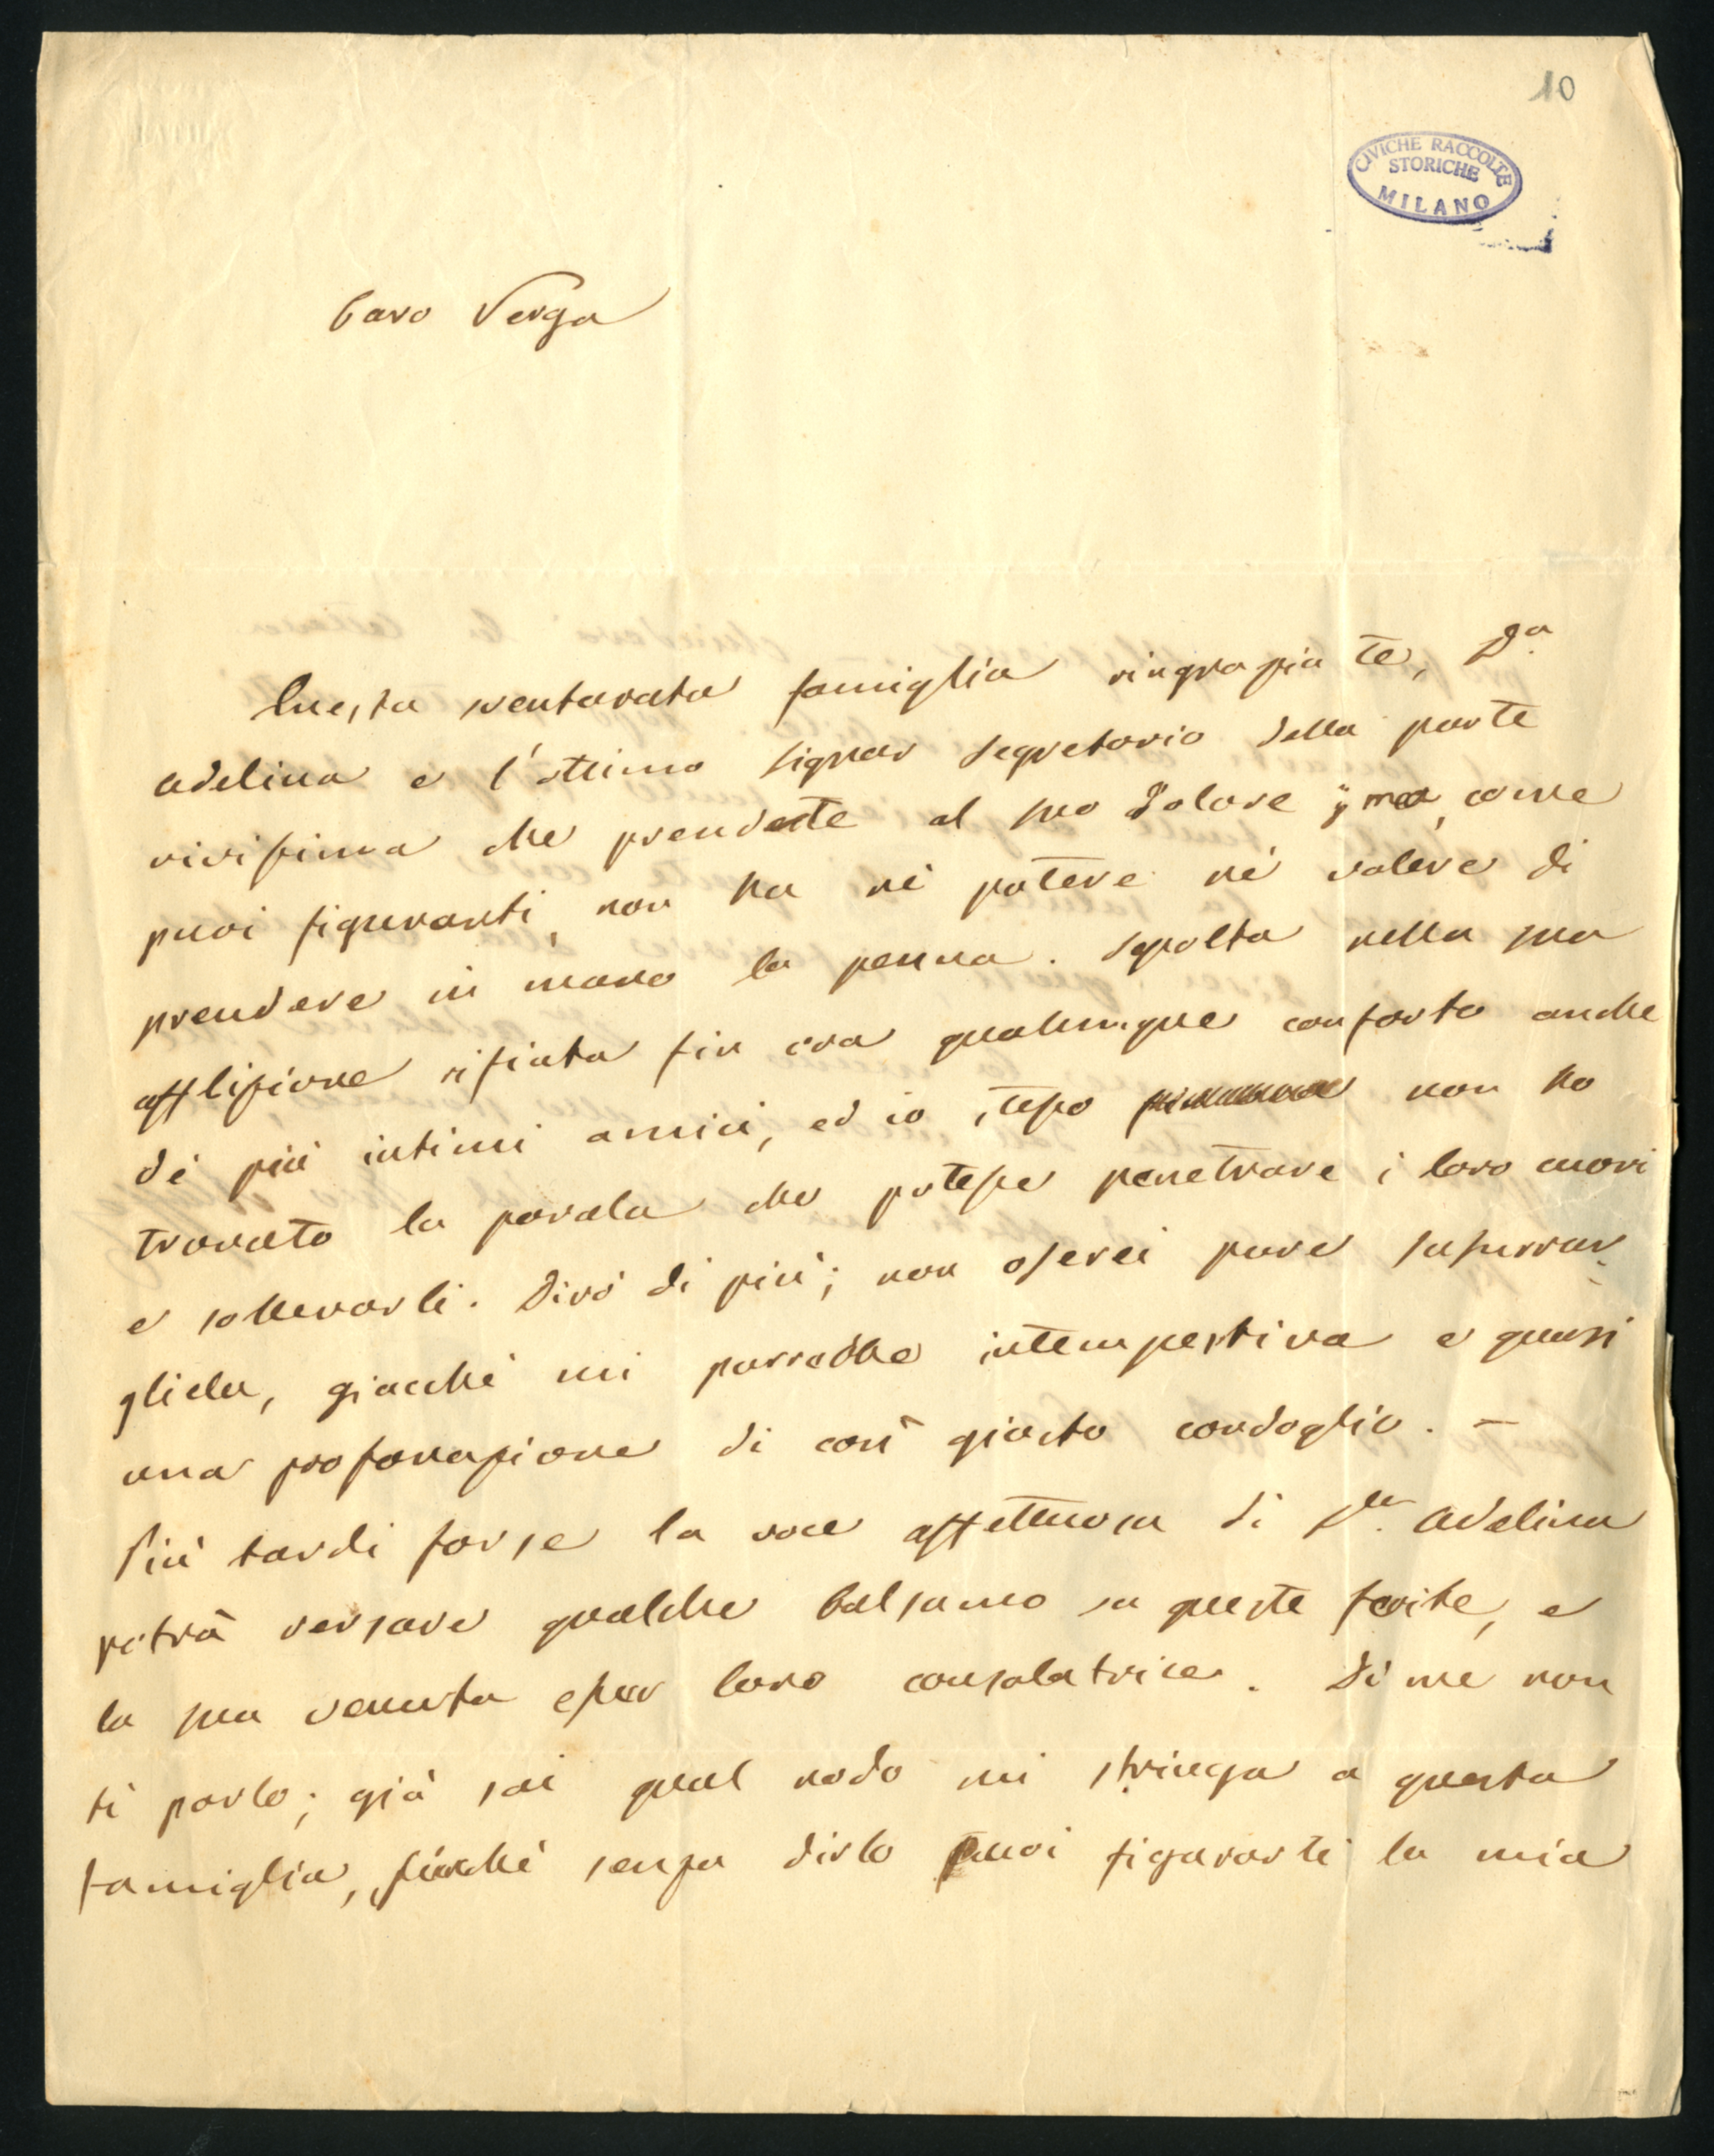 10
CIVICHE RACCOLTE
STORICHE
MILANO
Caro Verga
Questa sventurata famiglia ringrazia te, D.a
Adelina e l'ottimo Signor Segretario della parte
vivissima che prendete al suo dolore; ma, come
puoi figurarti, non ha nè potere nè volere di
prendere in mano la penna. Sepolta nella sua
afflizione rifiuta fin ora qualunque conforto anche
de' più intimi amici, ed io stesso non ho
trovato la parola che potesse penetrare i loro cuori
e sollevarli. Dirò di più; non oserei pure susurrar-
gliela, giacchè mi parrebbe intempestiva e quasi
una profanazione di così giusto cordoglio. –
Più tardi forse la voce affettuosa di D.a Adelina
potrà versare qualche balsamo su queste ferite, e
la sua venuta esser loro consolatrice. Di me non
ti parlo; già sai qual nodo mi stringa a questa
famiglia, sicchè senza dirlo puoi figurarti la mia